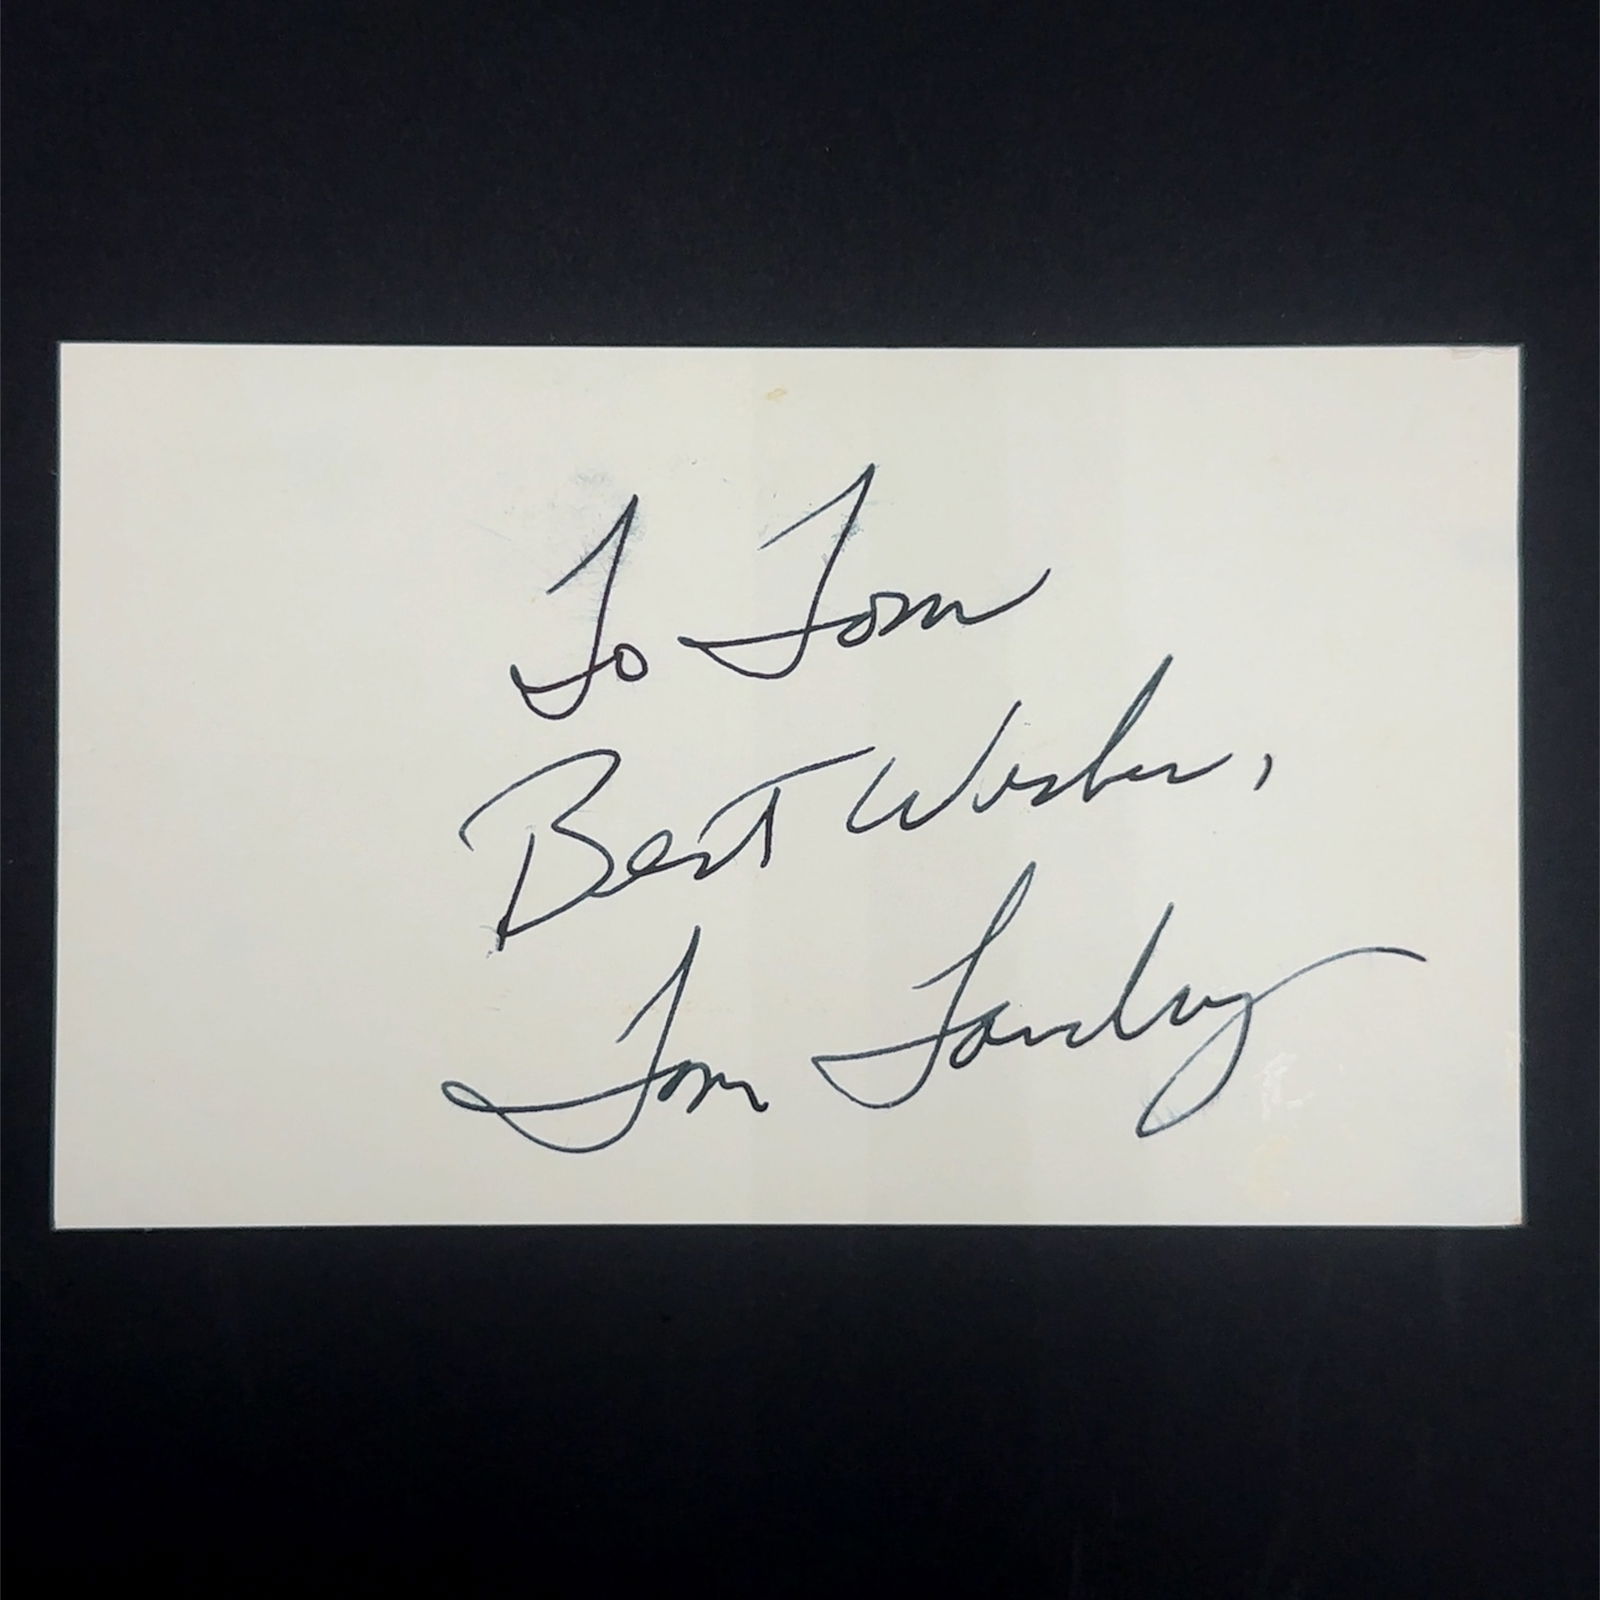 To Tom
Best Wishes,
Tom Landry